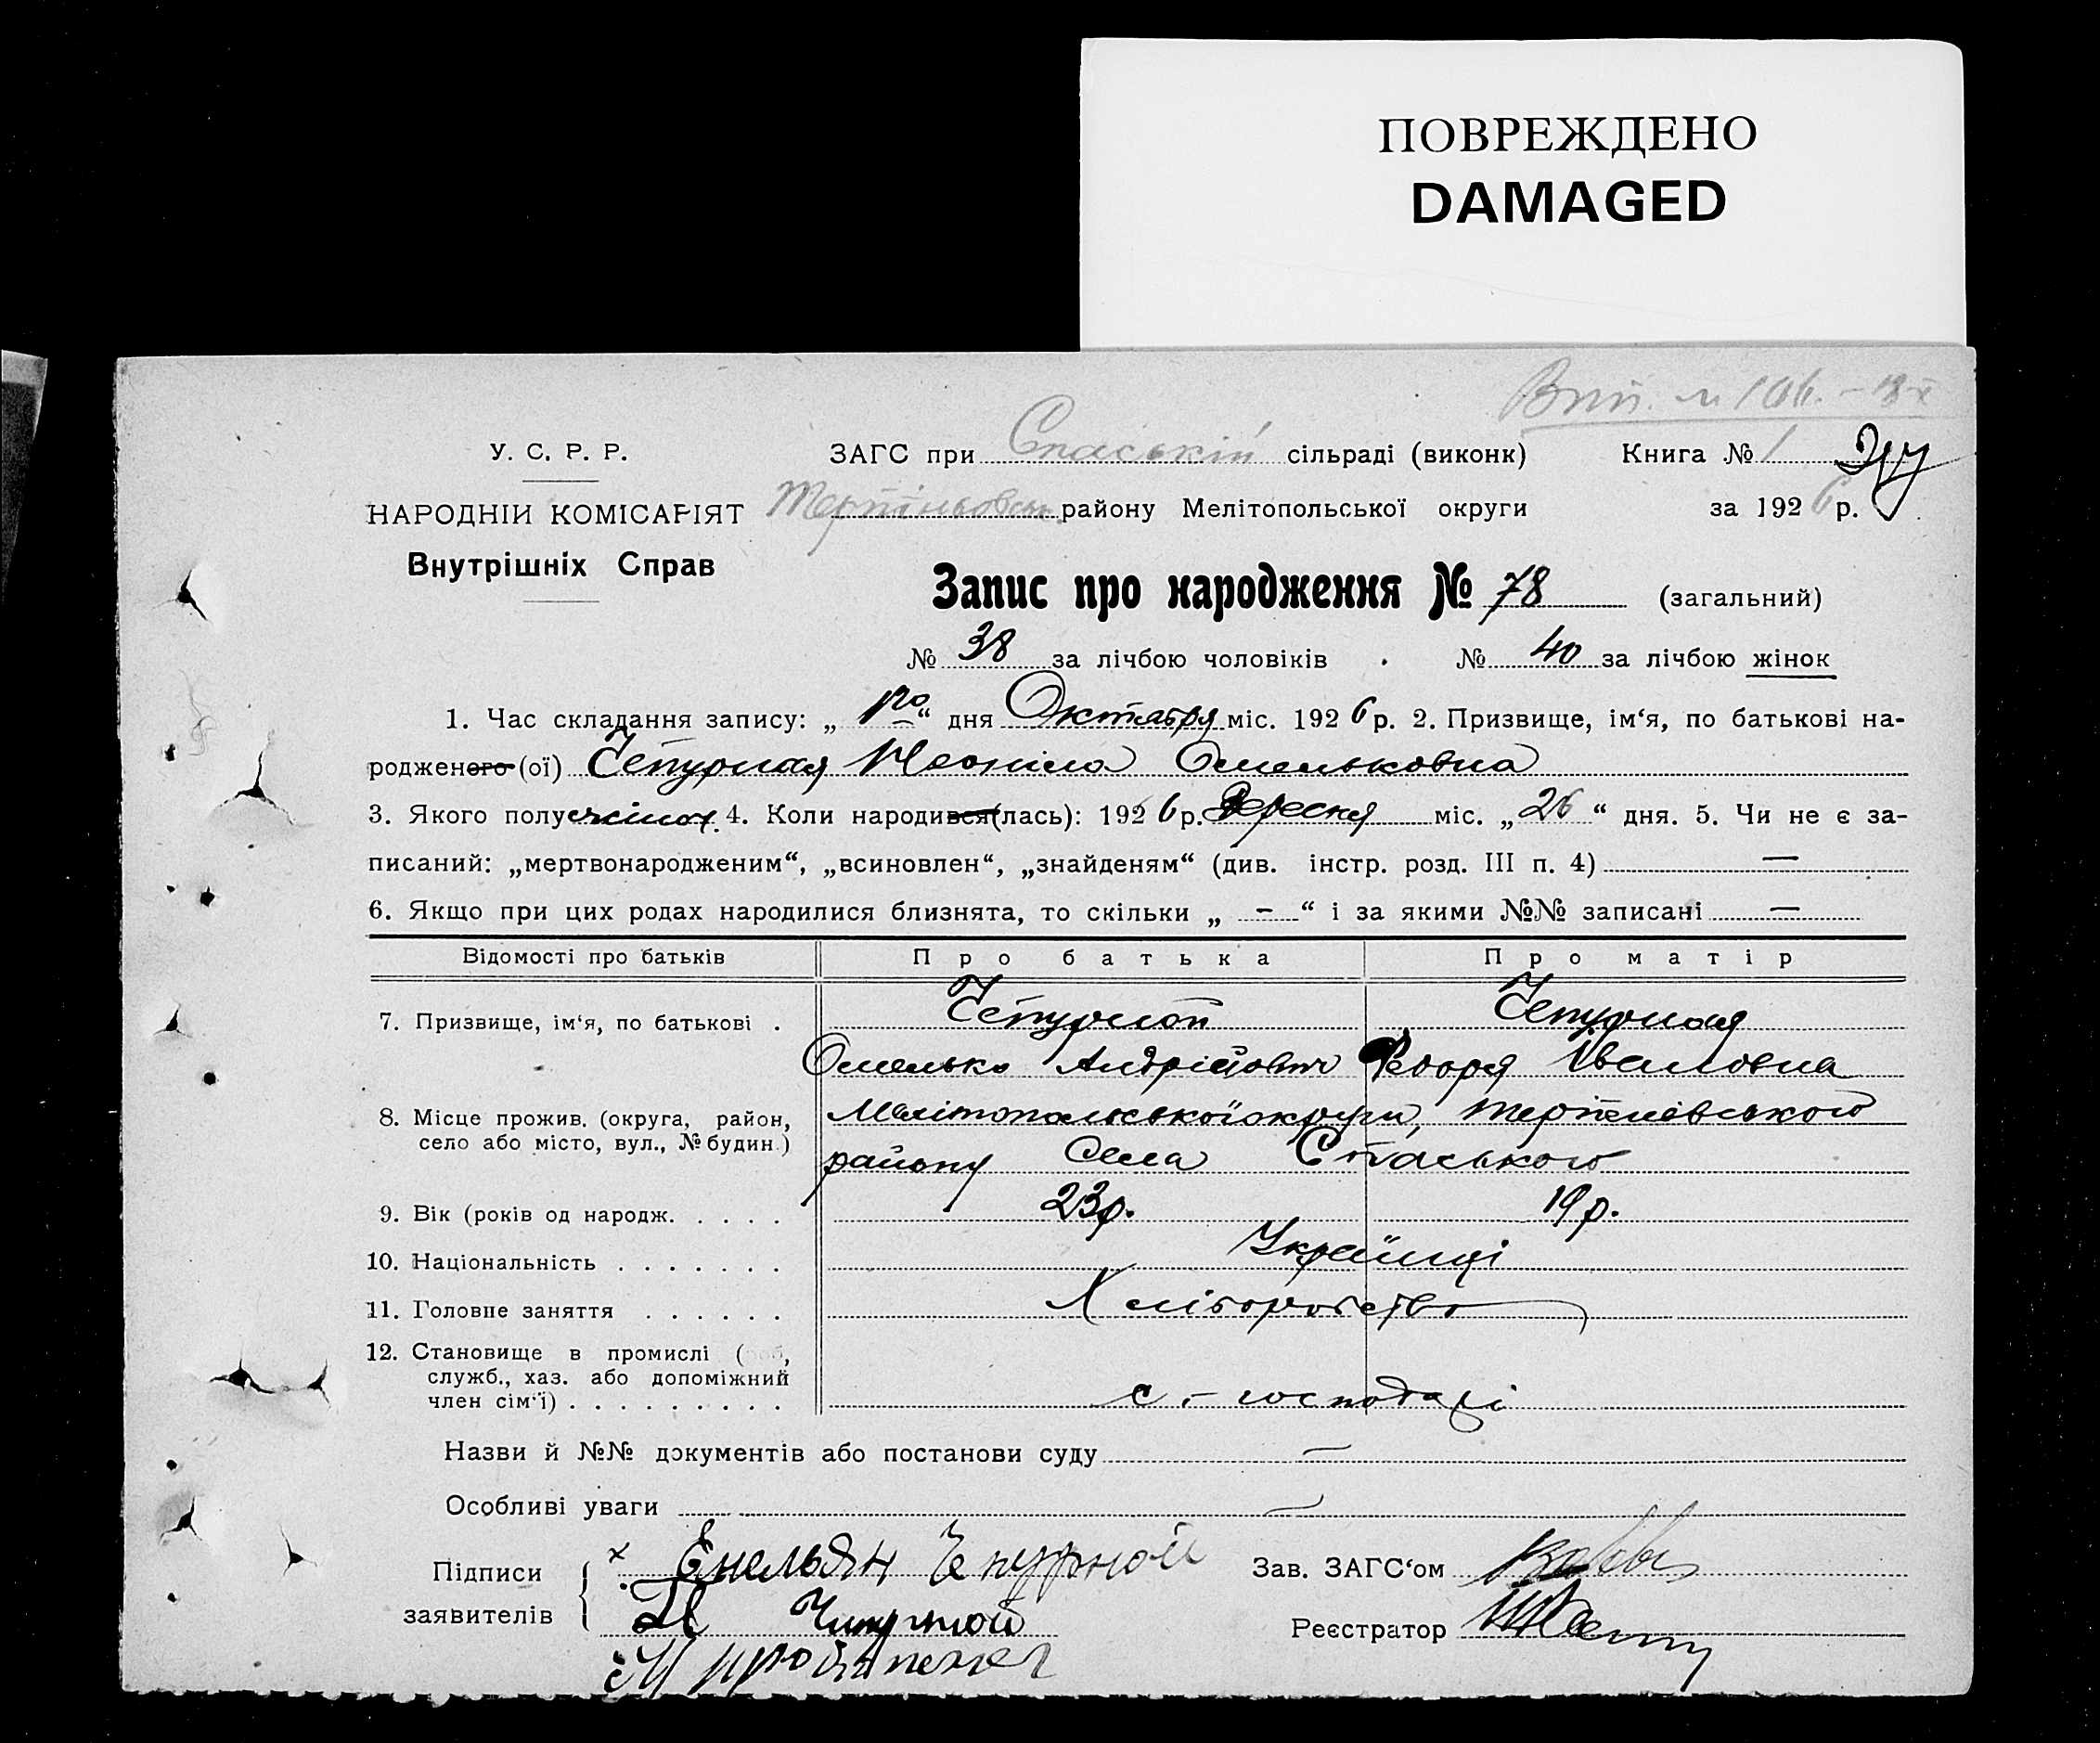 ПОВРЕЖДЕНО
DAMAGED
У. С. Р. Р.
ЗАГС при Спаській сільраді (виконк) Книга № 1
НАРОДНІЙ КОМІСАРІЯТ
району Мелітопольської округи за 1926 р.
Внутрішніх Справ
Запис про народження № 78 (загальний)
№ 38 за лічбою чоловіків . № 40 за лічбою жінок
1. Час складання запису: „ 1го “ дня Октября міс. 1926 р. 2. Призвище, ім‘я, по батькові на-
родженого (ої) Чепурная Неоніла Омельковна
3. Якого полу жіноч. 4. Коли народився(лась): 1926 р. Вересня міс. „ 26 “ дня. 5. Чи не є за-
писаний: „мертвонародженим“, „всиновлен“, „знайденям“ (див. інстр. розд. III п. 4) —
6. Якщо при цих родах народилися близнята, то скільки „ – “ і за якими №№ записані —
Відомості про батьків Про батька Про матір
7. Призвище, ім‘я, по батькові . Чепурной Чепурная
Омелько Андрійович Федора Івановна
8. Місце прожив. (округа, район, Мелітопольської округи, Терпенівського
село або місто, вул., № будин.) району села Спаського
9. Вік (років од народж. . . . . 23 р. 19 р.
10. Національність . . . . . . . Українці
11. Головне заняття . . . . . . Хліборобство
12. Становище в промислі (роб,
служб., хаз. або допоміжний
член сім‘ї) . . . . . . . . . с.-господарі
Назви й №№ документів або постанови суду —
Особливі уваги —
Підписи х Емельян Чепурной Зав. ЗАГС‘ом
заявителів Чепурной Реєстратор